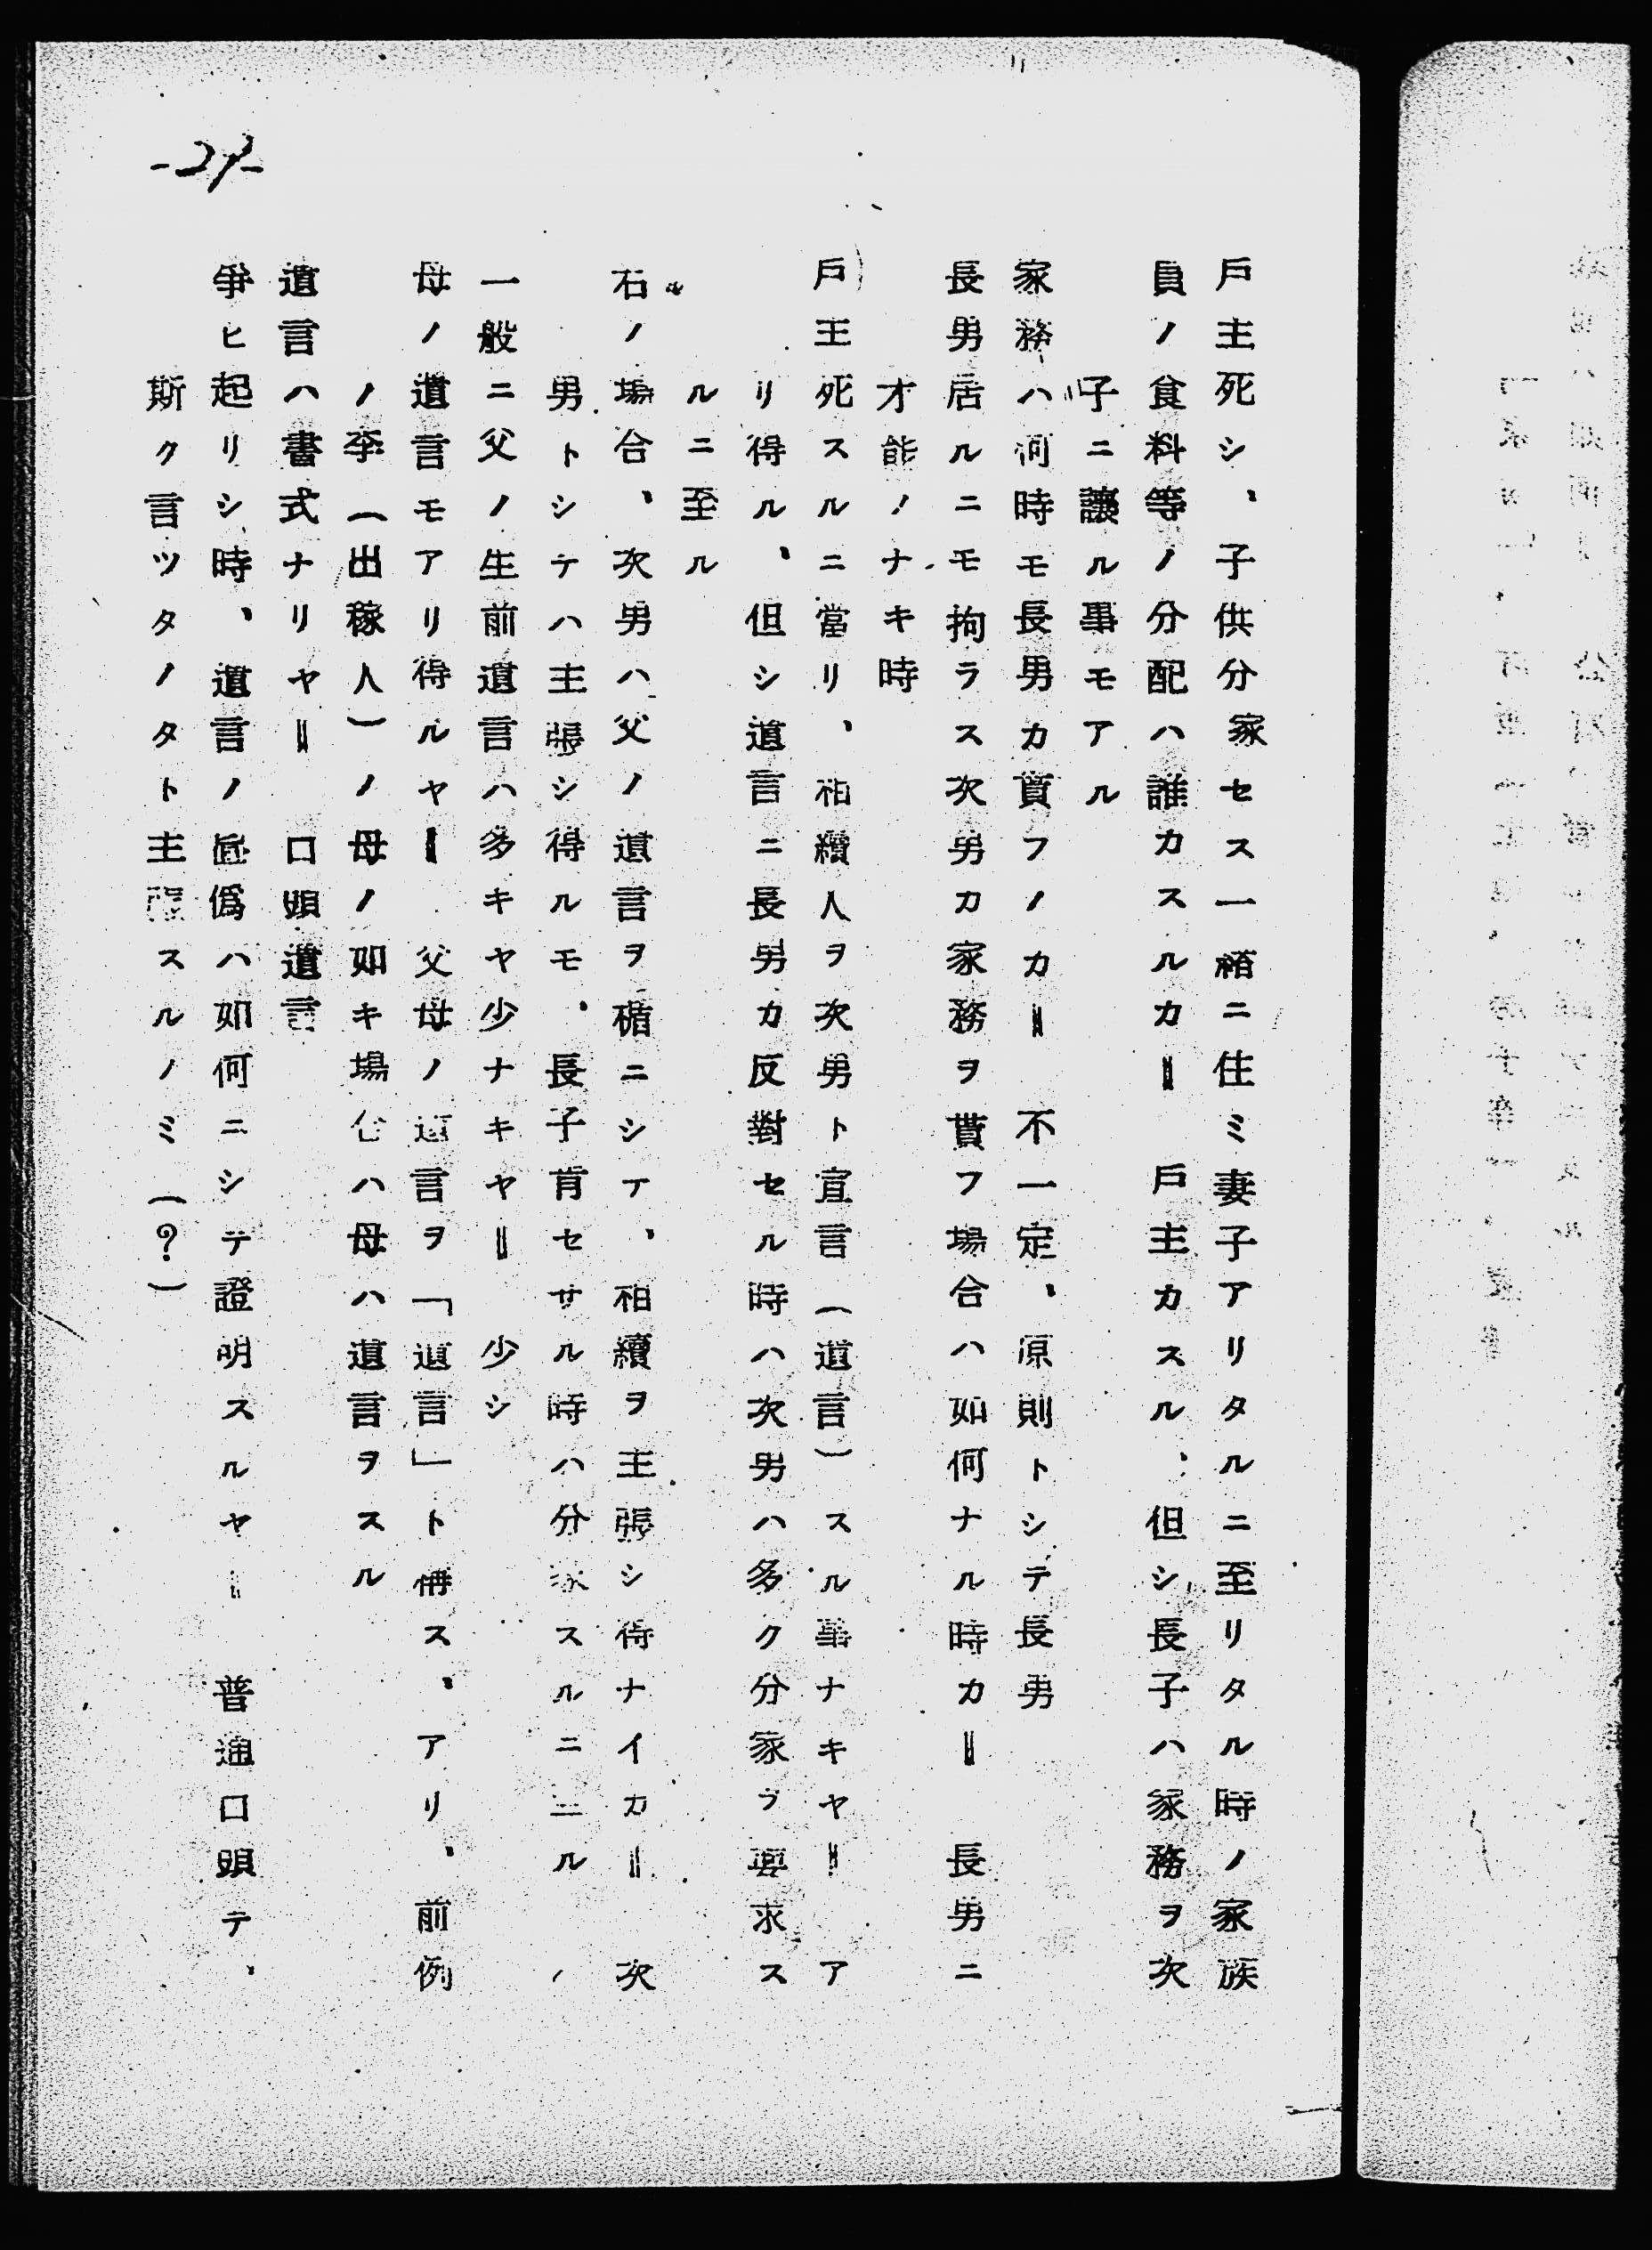 戶主死シ、子供分家セス一緒ニ住ミ妻子アリタルニ至リタル時ノ家族
員ノ食料等ノ分配ハ誰カスルカ—‖ 戶主カスル、但シ長子ハ家務ヲ次
子ニ讓ル事モアル
家務ハ何時モ長男カ貰フノカ—‖ 不一定、原則トシテ長男
長男居ルニモ拘ラス次男カ家務ヲ貰フ場合ハ如何ナル時カ—‖ 長男ニ
才能ノナキ時
戶主死スルニ當リ、相續人ヲ次男ト宣言(遺言)スル事ナキヤ—‖ ア
リ得ル、但シ遺言ニ長男カ反對セル時ハ次男ハ多ク分家ヲ要求ス
ルニ至ル
右ノ場合、次男ハ父ノ遺言ヲ楯ニシテ、相續ヲ主張シ得ナイカ—‖ 次
男トシテハ主張シ得ルモ、長子肯セサル時ハ分家スルニ ル
一般ニ父ノ生前遺言ハ多キヤ少ナキヤ—‖ 少シ
母ノ遺言モアリ得ルヤ—‖ 父母ノ遺言ヲ「遺言」ト稱ス、アリ、前例
ノ李(出稼人)ノ母ノ如キ場合ハ母ハ遺言ヲスル
遺言ハ書式ナリヤ—‖ 口頭遺言
爭ヒ起リシ時、遺言ノ眞僞ハ如何ニシテ證明スルヤ—‖ 普通口頭テ、
斯ク言ツタノタト主張スルノミ(?)